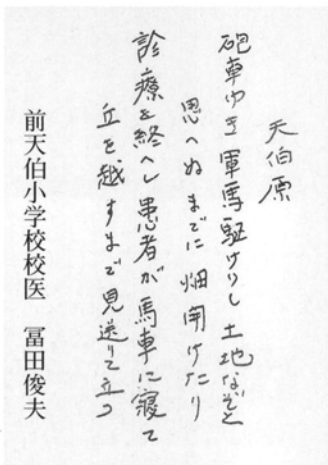 天伯原
砲車ゆき軍馬駆けりし土地なぞと
思へぬまでに畑開けたり
診療を終へし患者が馬車に寝て
丘を越すまで見送りて立つ
前天伯小学校校医　冨田俊夫